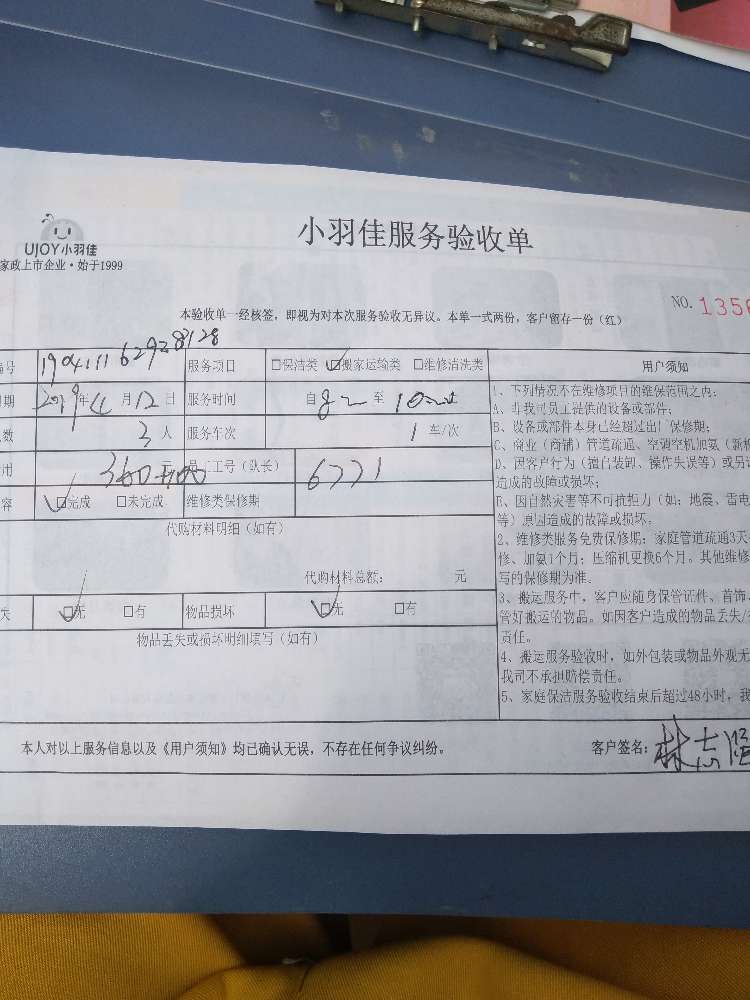 小羽佳服务验收单
UJOY小羽佳
家政上市企业·始于1999
NO. 1356
本验收单一经核签，即视为对本次服务验收无异议。本单一式两份，客户留存一份（红）
编号 服务项目 □保洁类 ☑搬家运输类 □维修清洗类 用户须知
期 2019年4月12日 服务时间 自 至
数 3人 服务车次 1 车/次
用 元 员工工号（队长） 6771
容 ☑完成 □未完成 维修类保修期
代购材料明细（如有）
代购材料总额： 元
失 ☑无 □有 物品损坏 ☑无 □有
物品丢失或损坏明细填写（如有）
1、下列情况不在维修项目的维保范围之内：
A、非我司员工提供的设备或部件；
B、设备或部件本身已经超过出厂保修期；
C、商业（商铺）管道疏通、空调空机加氨（新机
D、因客户行为（擅自装卸、操作失误等）或另请
造成的故障或损坏；
E、因自然灾害等不可抗拒力（如：地震、雷电
等）原因造成的故障或损坏；
2、维修类服务免费保修期：家庭管道疏通3天
修、加氨1个月；压缩机更换6个月。其他维修
写的保修期为准.
3、搬运服务中，客户应随身保管证件、首饰、
管好搬运的物品。如因客户造成的物品丢失/
责任。
4、搬运服务验收时，如外包装或物品外观无
我司不承担赔偿责任。
5、家庭保洁服务验收结束后超过48小时，我
本人对以上服务信息以及《用户须知》均已确认无误，不存在任何争议纠纷。 客户签名：